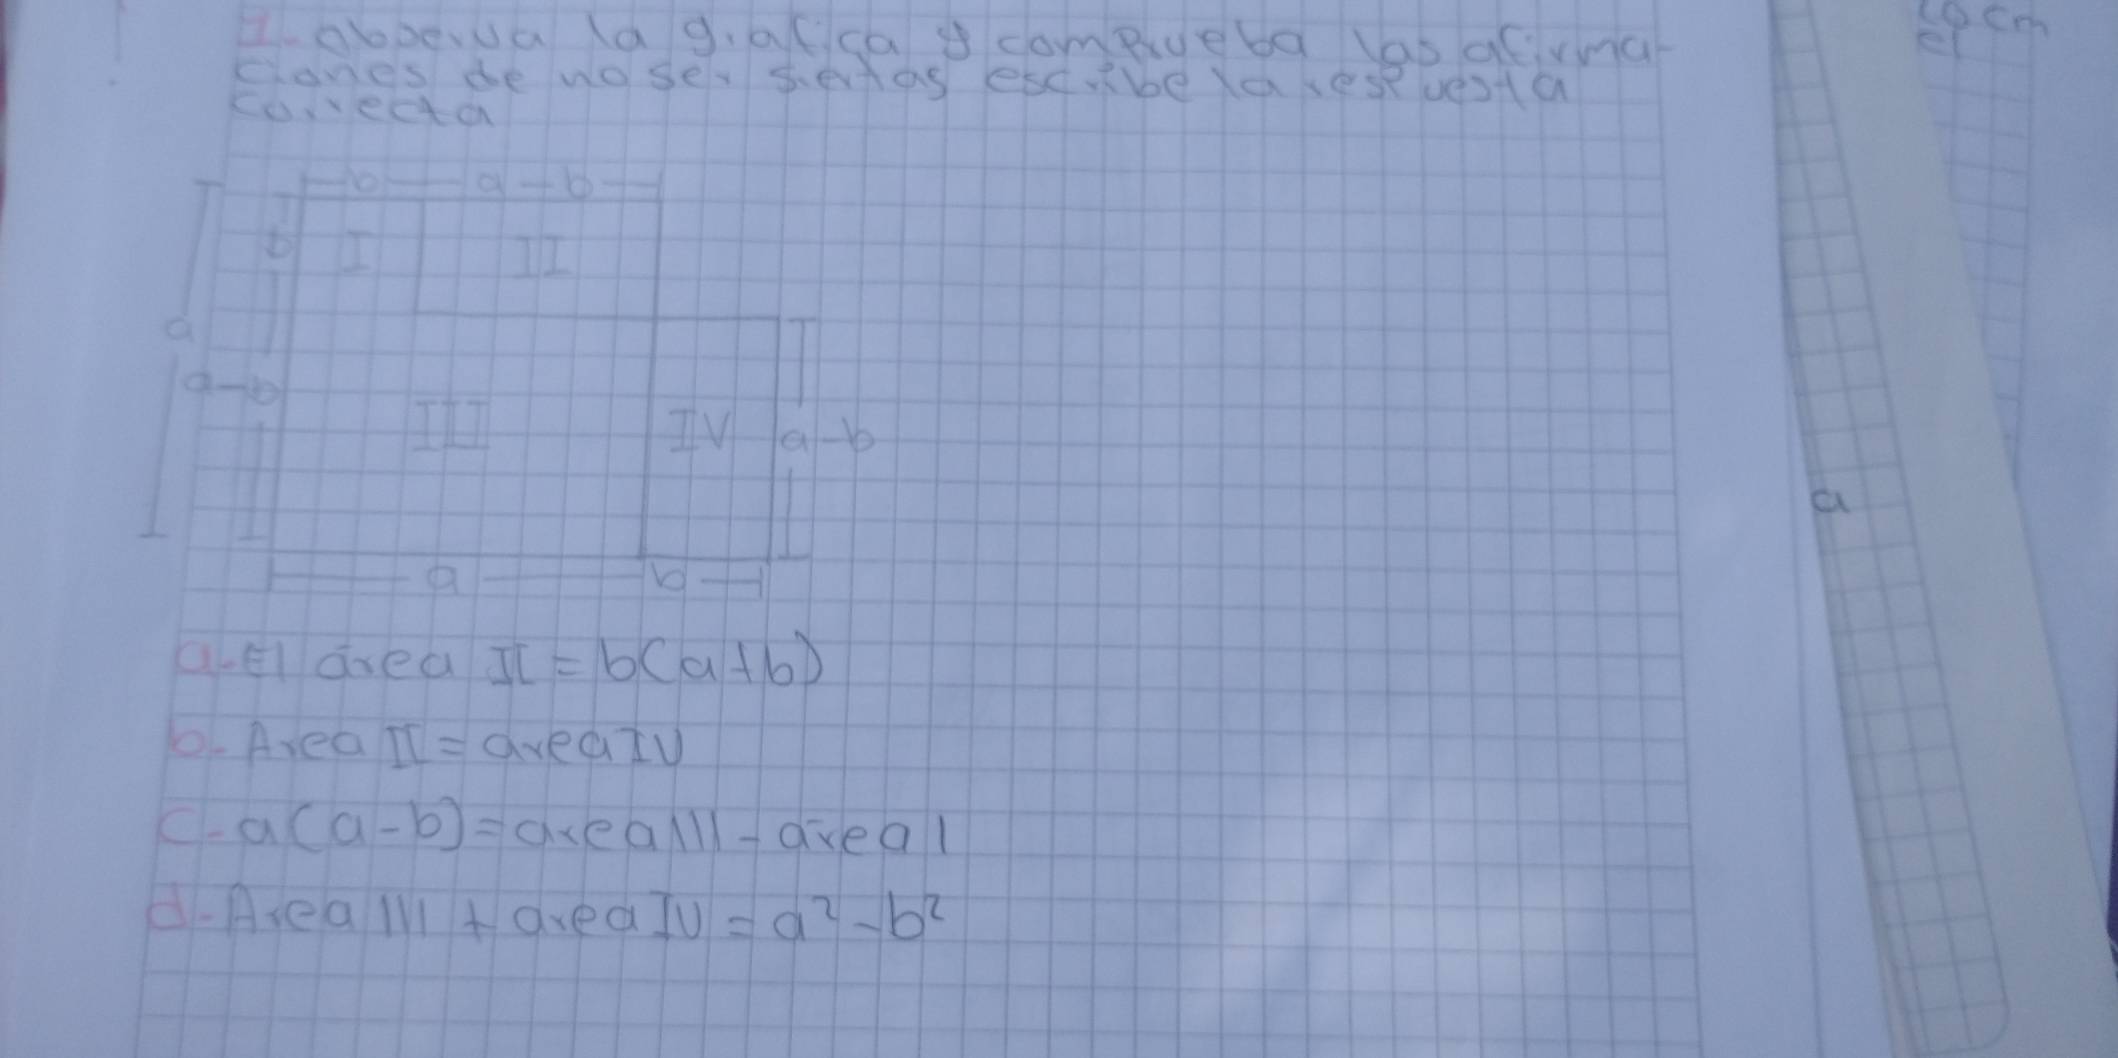 1- observa la grafica y comprueba las afirma-
ciones de no ser siertas escribe la respuesta
correcta
b a-b
b I II
a
a-b
III IV a-b
a b
a- El área II = b(a+b)
b- Area II = area IV
c- a(a-b) = area III - área I
d- Area III + area IV = a² - b²
10 cm
el
a